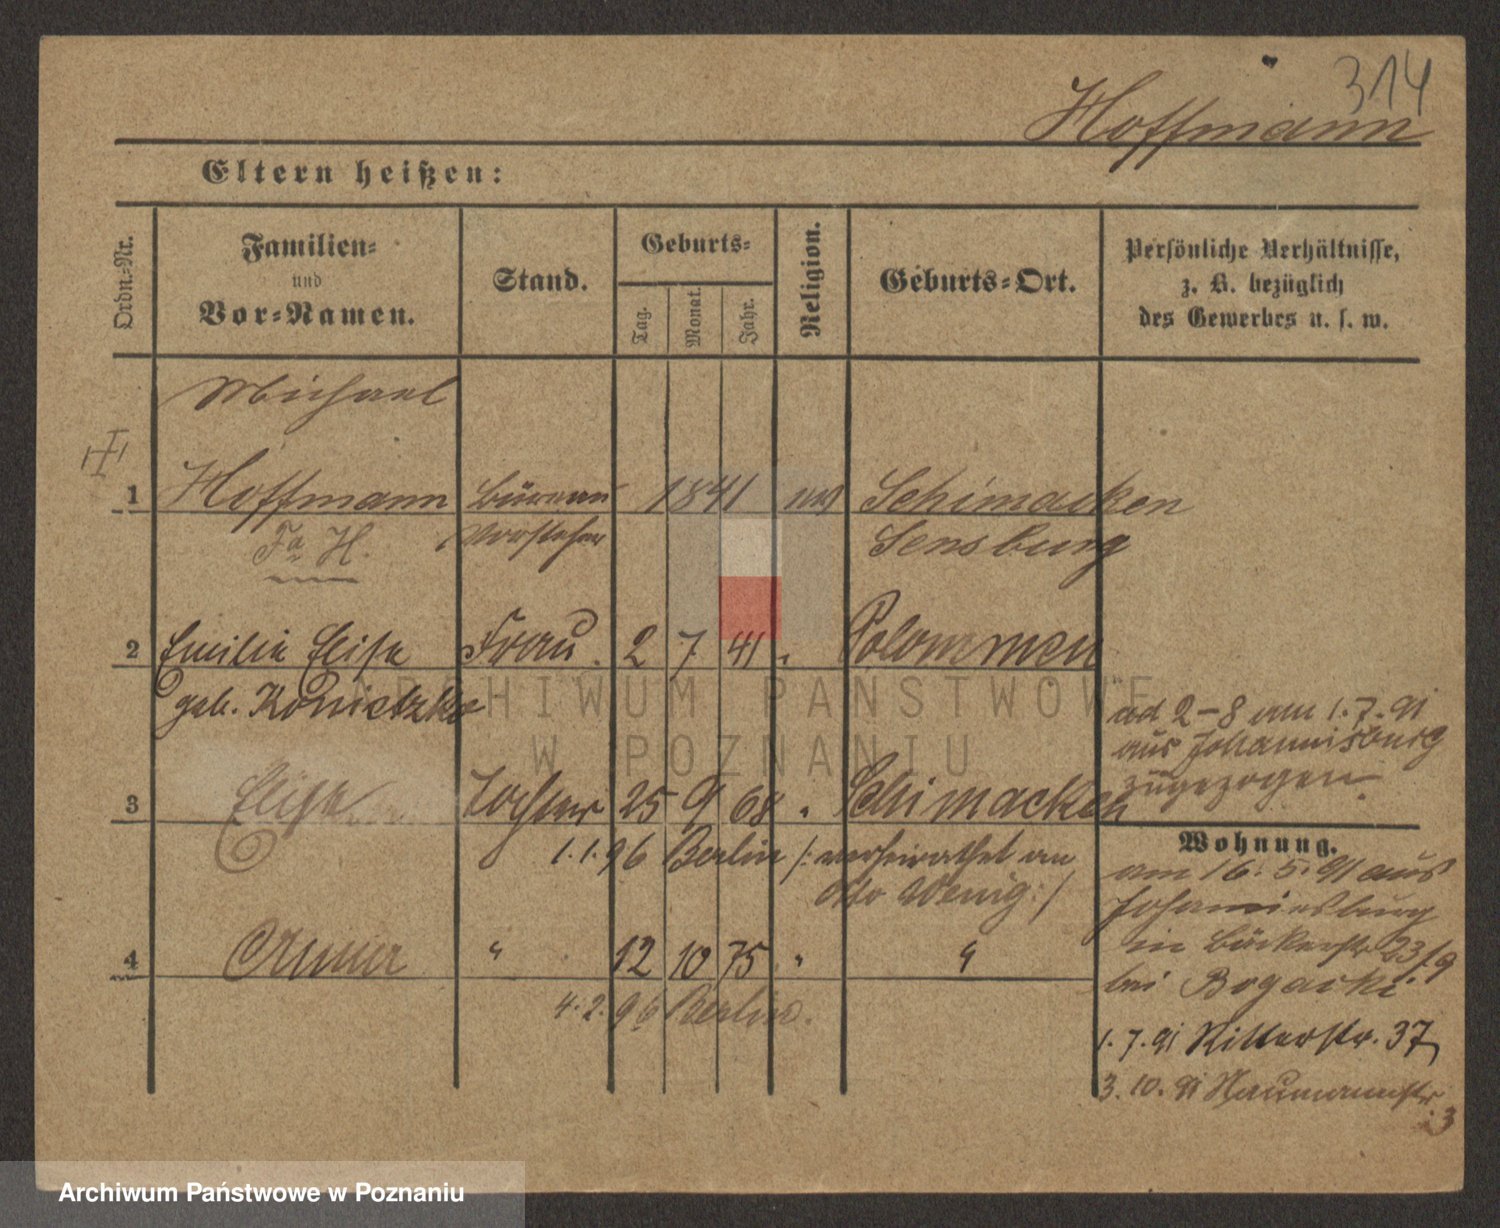 314
Hoffmann
Eltern heißen:
Ordn=Nr.
Familien=
und
Vor=Namen.
Stand.
Geburts=
Tag.
Monat.
Jahr.
Religion.
Geburts=Ort.
Persönliche Verhältnisse,
z. B. bezüglich
des Gewerbes u. s. w.
Michael
1 Hoffmann Büreau 1841 ev Schimacken
Fa H. Vorsteher Sensburg
2 Emilie Elise Frau 2 7 41 " Polommen
geb. Konietzko
ad 2-8 am 1.7.91
aus Johannisburg
zugezogen
3 Elise Tochter 25 9 68 " Schimacken
1.1.96 Berlin /: verheirathet an
Otto Wenig :/
4 Anna " 12 10 75 " "
4.2.96 Berlin.
Wohnung.
am 16.5.91 aus
Johannisburg
in Bäckerstr 23/9
bei Bogacki
1.7.91 Ritterstr. 37
3.10.91 Naumannstr
3
ARCHIWUM PAŃSTWOWE
W POZNANIU
Archiwum Państwowe w Poznaniu